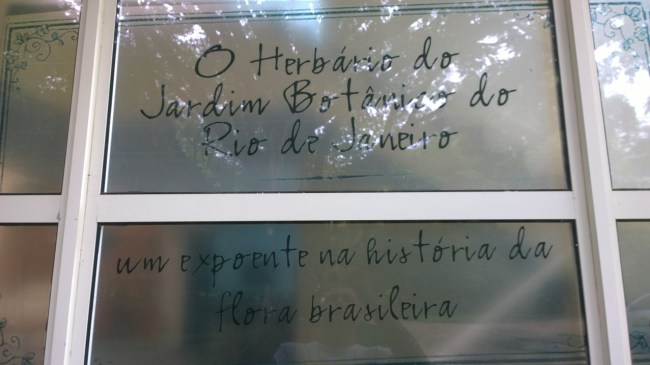 O Herbário do
Jardim Botânico do
Rio de Janeiro
um expoente na história da
flora brasileira